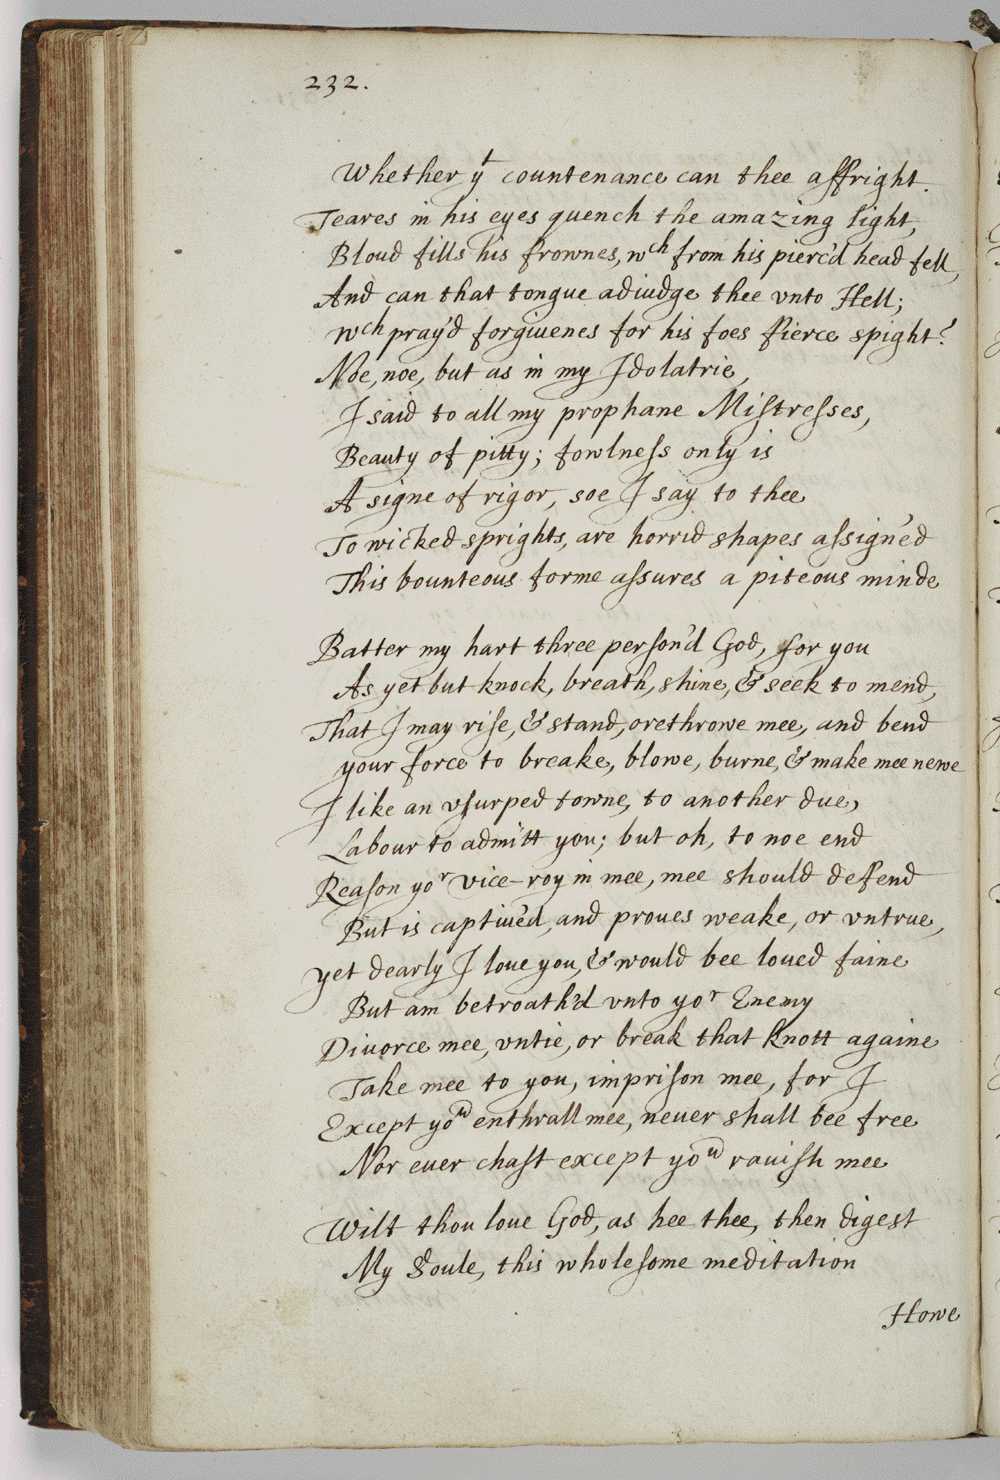 232.
Whether yt countenance can thee affright.
Teares in his eyes quench the amazing light,
Bloud fills his frownes, wch from his pierc'd head fell,
And can that tongue adiudge thee vnto Hell;
wch pray'd forgiuenes for his foes fierce spight?
Noe, noe, but as in my Idolatrie,
I said to all my prophane Mistresses,
Beauty of pitty; fowlness only is
A signe of rigor, soe I say to thee
To wicked sprights, are horrid shapes assign'ed
This bounteous forme assures a piteous minde
Batter my hart three person'd God, for you
As yet but knock, breath, shine, & seek to mend,
That I may rise, & stand, orethrowe mee, and bend
your force to breake, blowe, burne, & make mee newe
I like an vsurped towne, to another due,
Labour to admitt you; but oh, to noe end
Reason yor vice-roy in mee, mee should defend
But is captiu'ed, and proues weake, or vntrue,
yet dearly I loue you, & would bee loued faine
But am betroath'd vnto yor Enemy
Diuorce mee, vntie, or break that knott againe
Take mee to you, imprison mee, for I
Except you enthrall mee, neuer shall bee free
Nor euer chast except you rauish mee
Wilt thou loue God, as hee thee, then digest
My Soule, this wholesome meditation
Howe